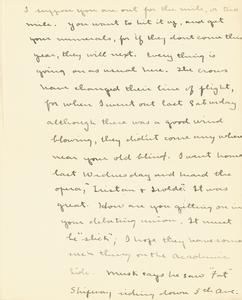 I suppose you are out for the mile, or two
mile. You want to hit it up, and get
your numerals, for if they dont come this
year, they will next. Every thing is
going on as usual here. The crows
have changed their line of flight,
for when I went out last Saturday
although there was a good wind
blowing, they didn't come any where
near your old blind. I went home
last Wednesday and heard the
opera, "Tristan & Isolde". It was
great. How are you getting on in
your debating union. It must
be "slick"; I hope they have some
men they on the Academic
Side. Musk says he saw "Fat"
Shipway riding down 5th Ave.